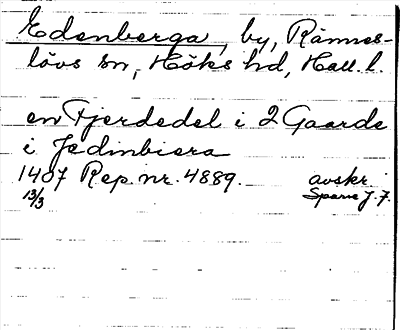 Edenberga, by, Rännes-
lövs sn, Höks hd, Hall. l.
en Fjerdedel i 2 Gaarde
i Jedinbiera
1407 Rep. nr. 4889. avskr.
13/3 Sparre J. F.